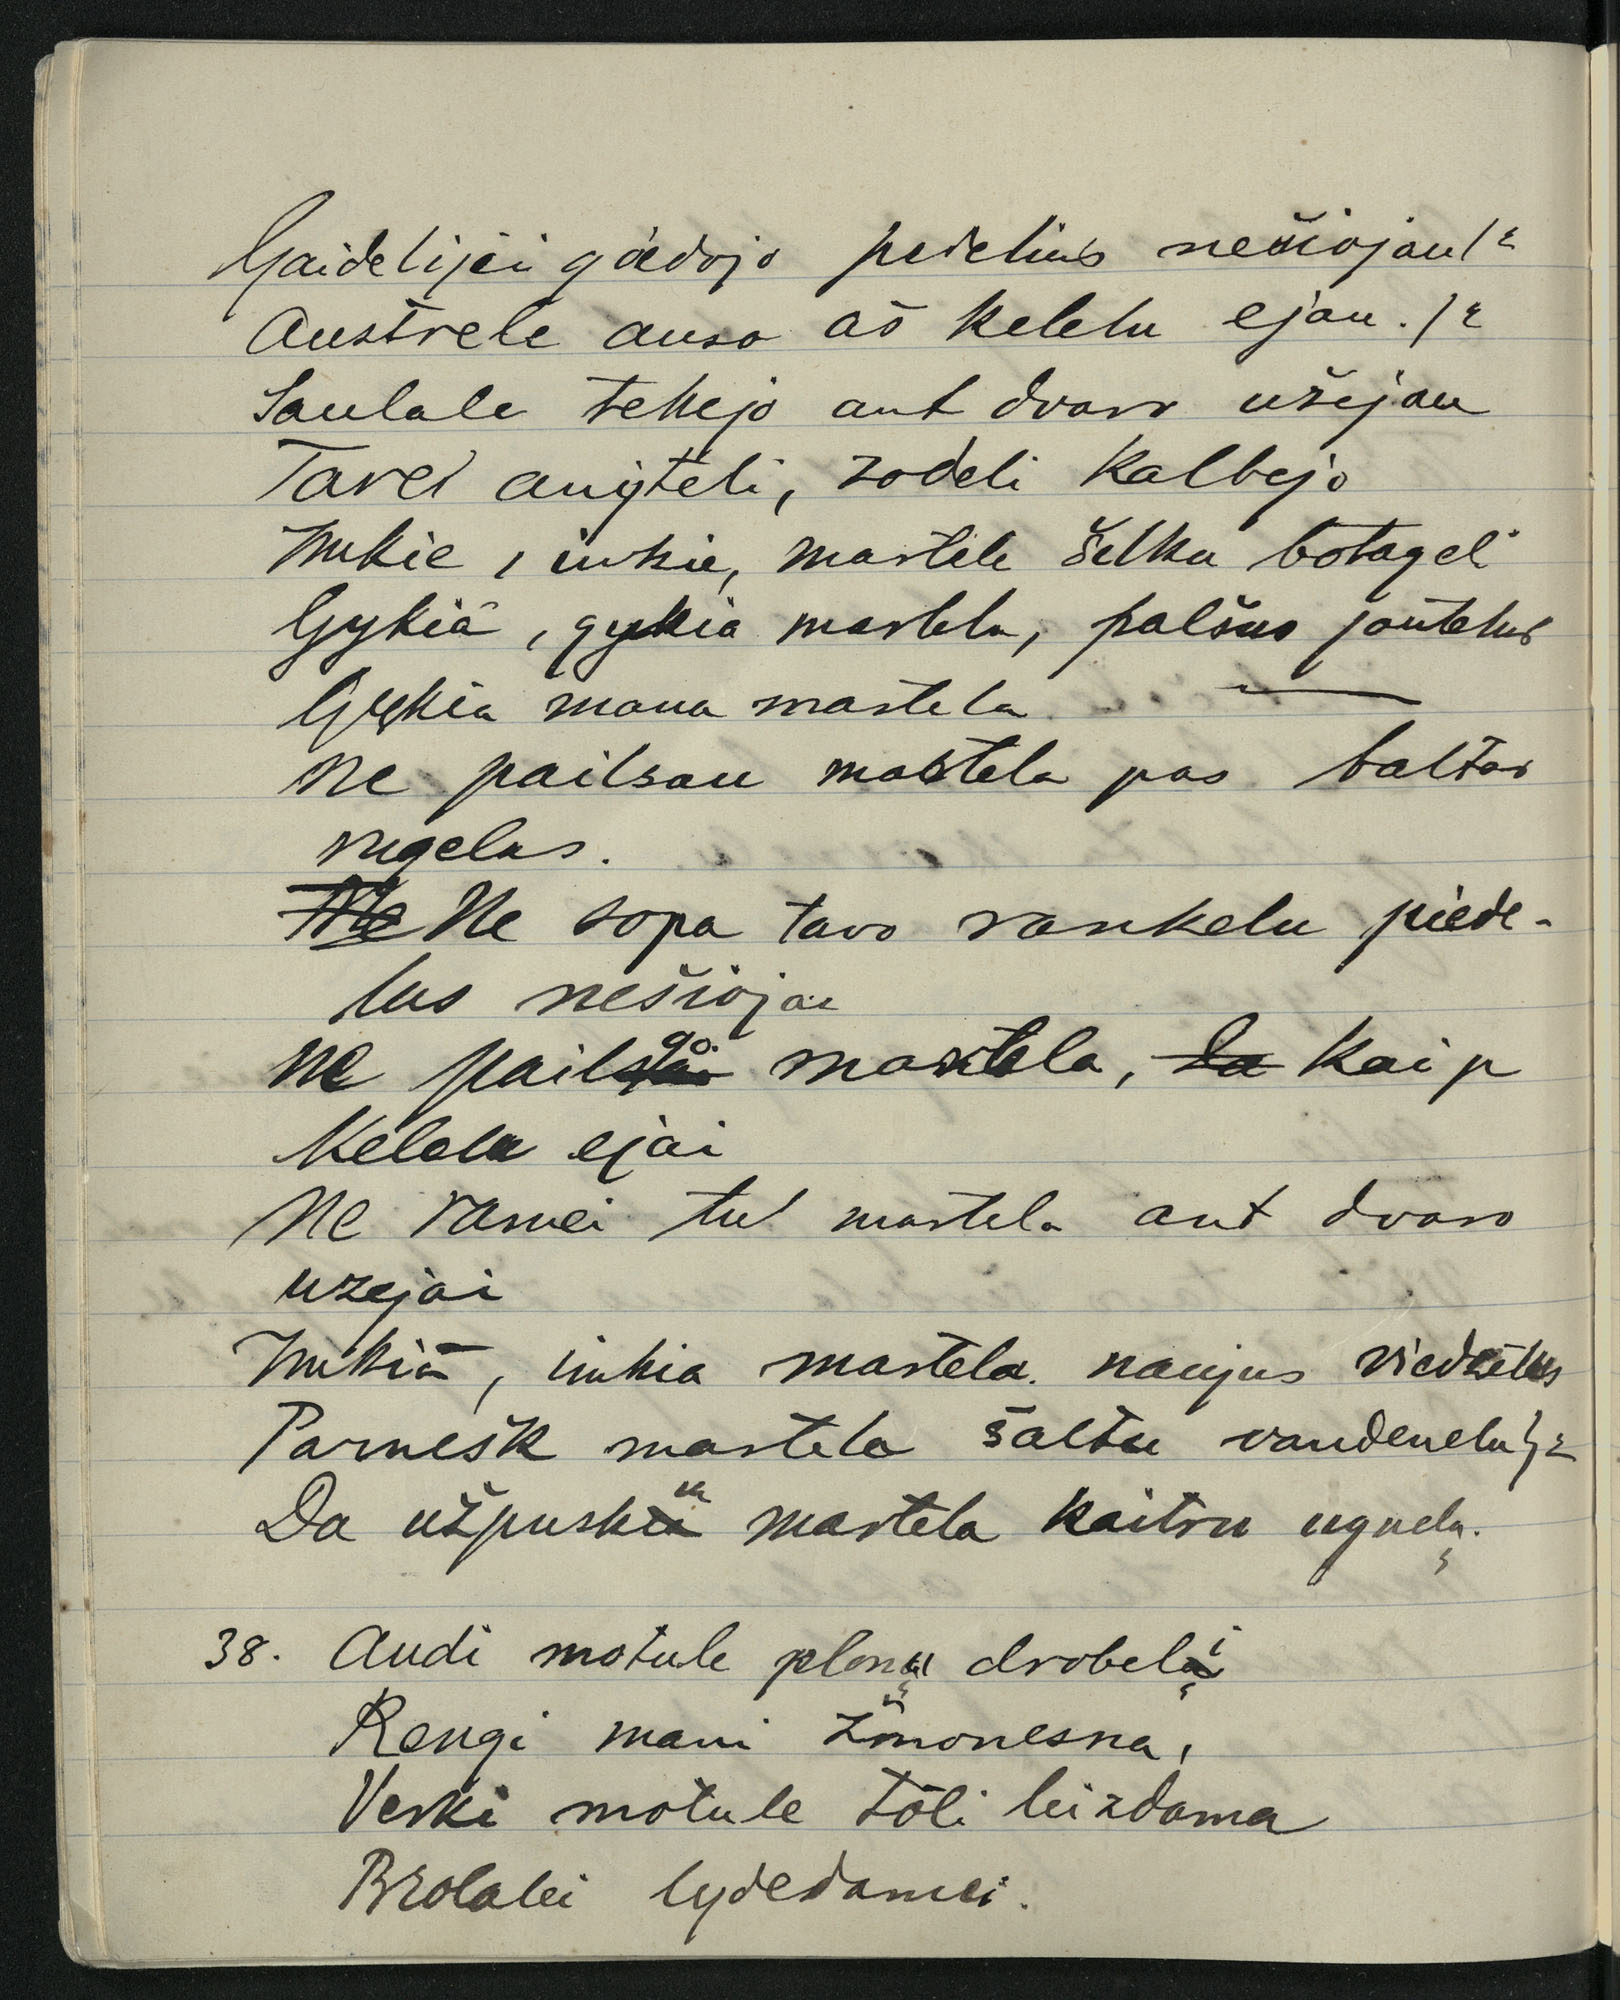 Gaidelijei gaedojo piedelius nešiojau /2
Austrele auso aš kelelu ejau. /2
Saulale tekejo ant dvaro užejau
Tarei anijteli, zodeli kalbejo
Imkie, imkie, martele šelku botageli
Gykia, gykia martela, palšus jautelus
Gykia mana martela
Ne pailsau martela pas baltas
rugelus.
Ne sopa tavo rankelu piede-
lus nešiojai
Ne pailsgo martela, kaip
Kelelu ejai
Ne ramei tu martela ant dvaro
uzejai
Imkia, imkia martela naujus viedrelus
Parnešk martela šaltu vandenelu /2
Da užpuskia martela kaitru ugnelu.
38. Audi motule plonų drobelį
Rengi mani žmonesna,
Verki motule toli leizdama
Brolalei lydedamei.